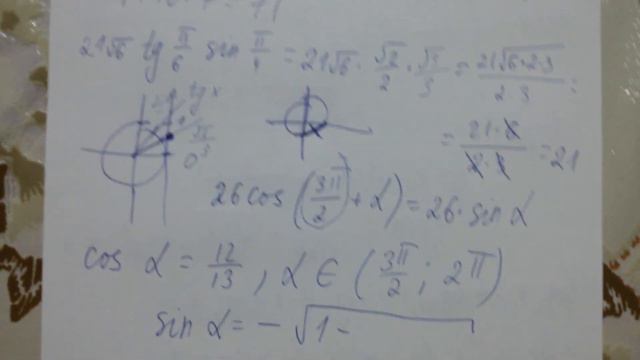 21√6 tg π/6 sin π/4 = 21√6 · √2/2 · √3/3 = 21√6·2·3 / 2·3 =
tg x
0
= 21·6 / 2·3 = 21
26 cos (3π/2 + α) = 26 · sin α
cos α = 12/13 , α ∈ (3π/2 ; 2π)
sin α = − √1 −